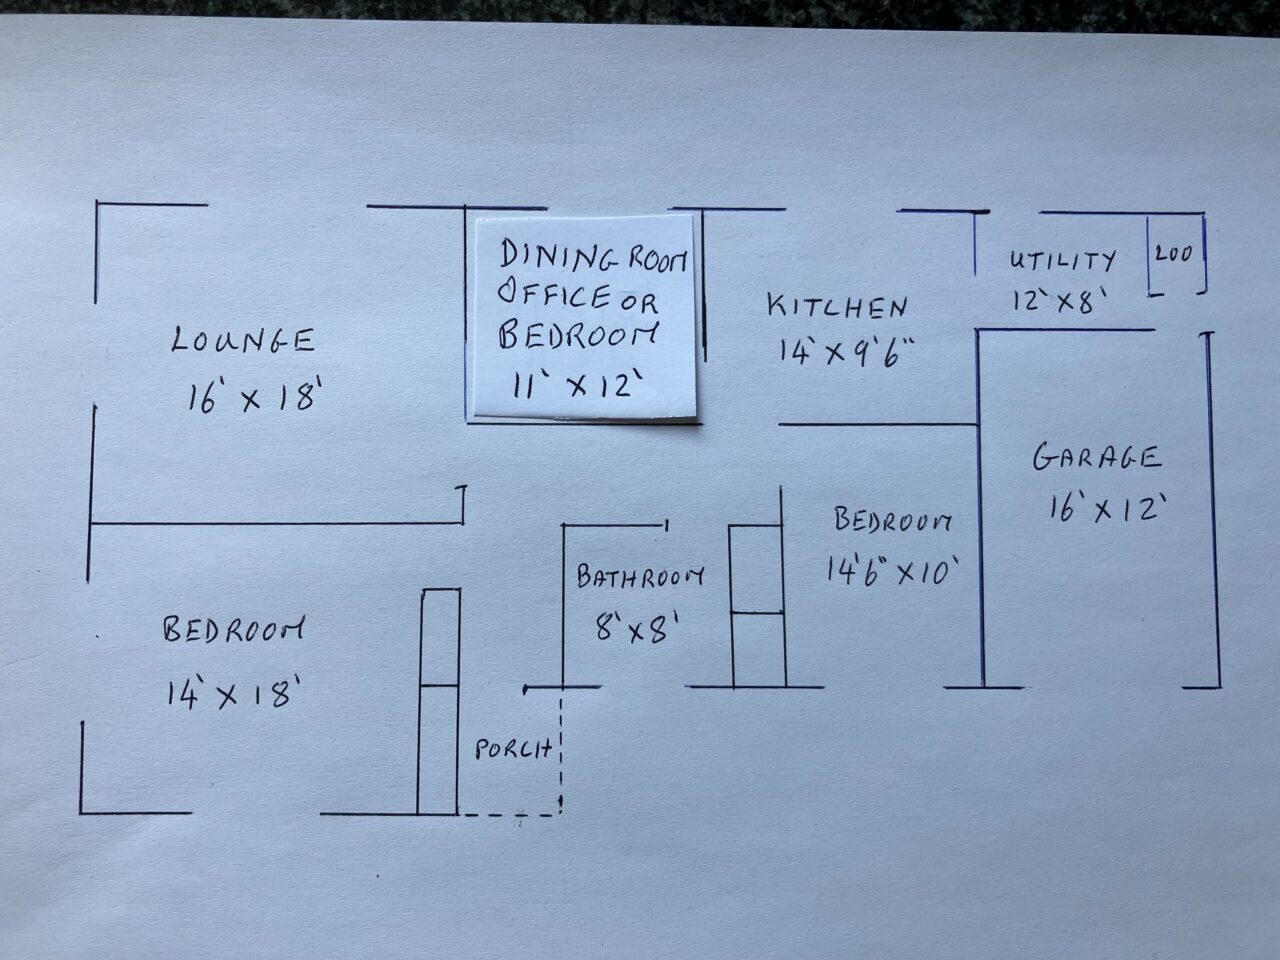 DINING ROOM
OFFICE OR
BEDROOM
11' X 12'
LOUNGE
16' X 18'
KITCHEN
14' X 9'6"
UTILITY
12' X 8'
LOO
GARAGE
16' X 12'
BEDROOM
14'6" X 10'
BATHROOM
8' X 8'
BEDROOM
14' X 18'
PORCH